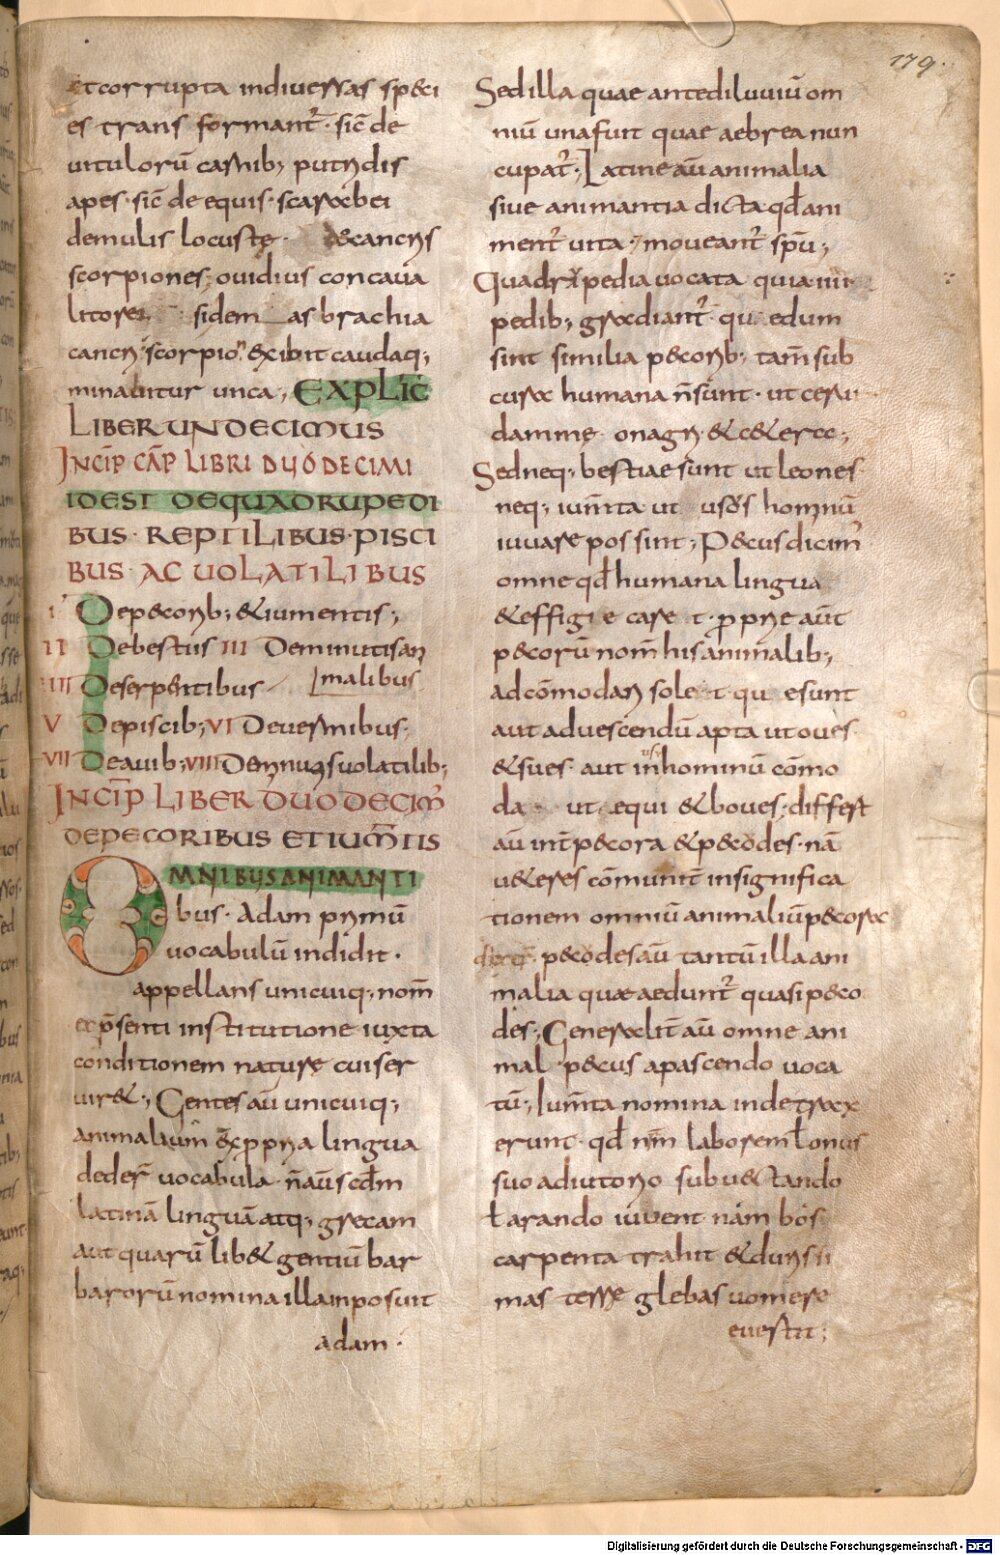 179.
et corrupta indiuersas speci
es trans formant᷑. sic̄ de
uitulorū carnib; putridis
apes. sic̄ de equis. scarabei
demulis locustę. & cancris
scorpiones; ouidius concaua
litorei sidem as brachia
cancri scorpio exibit caudaq;
minabitur unca; EXPLIC̄
LIBER UNDECIMUS
INCIP̄ CAP̄ LIBRI DUODECIMI
IDEST DEQUADRUPEDI
BUS· REPTILIBUS· PISCI
BUS· AC UOLATILIBUS
I Dep&corib; & iumentis;
II Debestiis III Deminutis an
IIII Deserpentibus malibus
V Depiscib; VI Deuermibus;
VII Deauib; VIII Deminutis uolatilib;
INCIP̄ LIBER DUODECIM̄
DEPECORIBUS ET IUM̄TIS
OMNIBUS ANIMANTI
bus. Adam primū
uocabulū indidit.
appellans unicuiq; nom̄
ex p̄senti institutione iuxta
conditionem nature cui ser
uir&; Gentes aū unicuiq;
animalium ex propria lingua
deder̄ uocabula. n̄ aū scd̄m
latinā linguā atq; grecam
aut quarū lib& gentiū bar
barorū nomina illa inposuit
adam.
Sed illa quae ante diluuiū om
niū una fuit quae aebrea nun
cupat᷑; Latine aū animalia
siue animantia dicta qd̄ ani
ment᷑ uita & moueant᷑ sp̄u;
Quadrupedia uocata quia iiii
pedib; gradiant᷑ qu edum
sint similia p&corib; tam̄ sub
cura humana n̄ sunt. ut cerui
damme. onagri. & c&erae;
Sed neq; bestiae sunt ut leones
neq; ium̄ta ut usos hominū
iuuare possint; P&cus dicim᷑
omne qd̄ humana lingua
& effigi e care t. proprie aūt
p&corū nom̄ his animalib;
ad cōmodari sole t qu e sunt
aut aduescendū apta ut oues
& sues. aut in usu hominū cōmo
da ut equi & boues; differt
aū int̄ p&cora & p&codes. nā
u&eres cōmunit̄ insignifica
tionem omniū animaliū p&cora
dixer̄. p&codes aū tantū illa ani
malia quae aedunt᷑ quasi p&co
des; Generalit̄ aū omne ani
mal. p&cus apascendo uoca
tū; Ium̄ta nomina inde trax
erunt. qd̄ nr̄m laborem ł onus
suo adiutorio subu&tando
ł arando iuuent nam bos
carpenta trahit & durissi
mas terre glebas uomere
euertit;
Digitalisierung gefördert durch die Deutsche Forschungsgemeinschaft - DFG